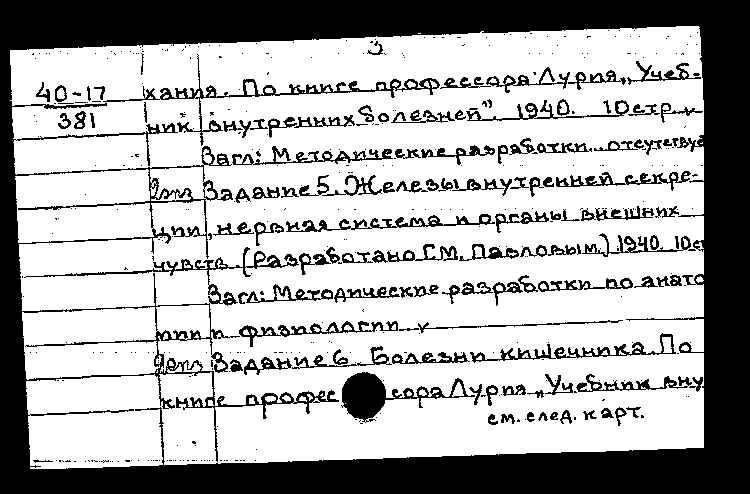 3
40-17 хания. По книге профессора Лурия „Учеб-
381
ник внутренних болезней". 1940. 10 стр.
Загл: Методические разработки... отсутствуе
Задание 5. Железы внутренней секре-
ции, нервная система и органы внешних
чувств. (Разработано Г.М. Павловым.) 1940. 10 ст
Загл: Методические разработки по анато
мии и физиологии.
Задание 6. Болезни кишечника. По
книге профессора Лурия „Учебник вну
см. след. карт.